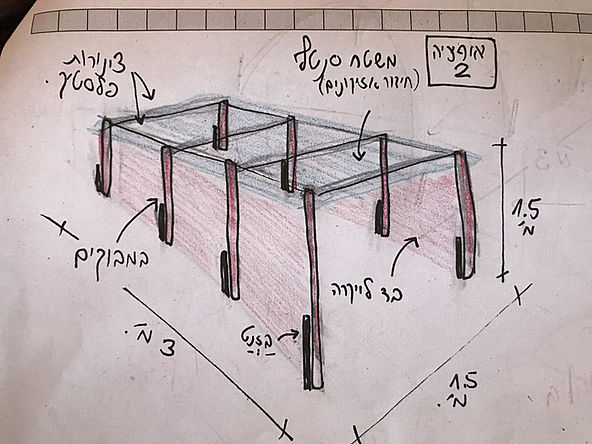 אופציה
2
צינורות
פלסטיק
משטח סנטף
(חיבור אזיקונים)
1.5
מ'
במבוקים
בד לייקרה
בזנט
3 מ'
1.5
מ'